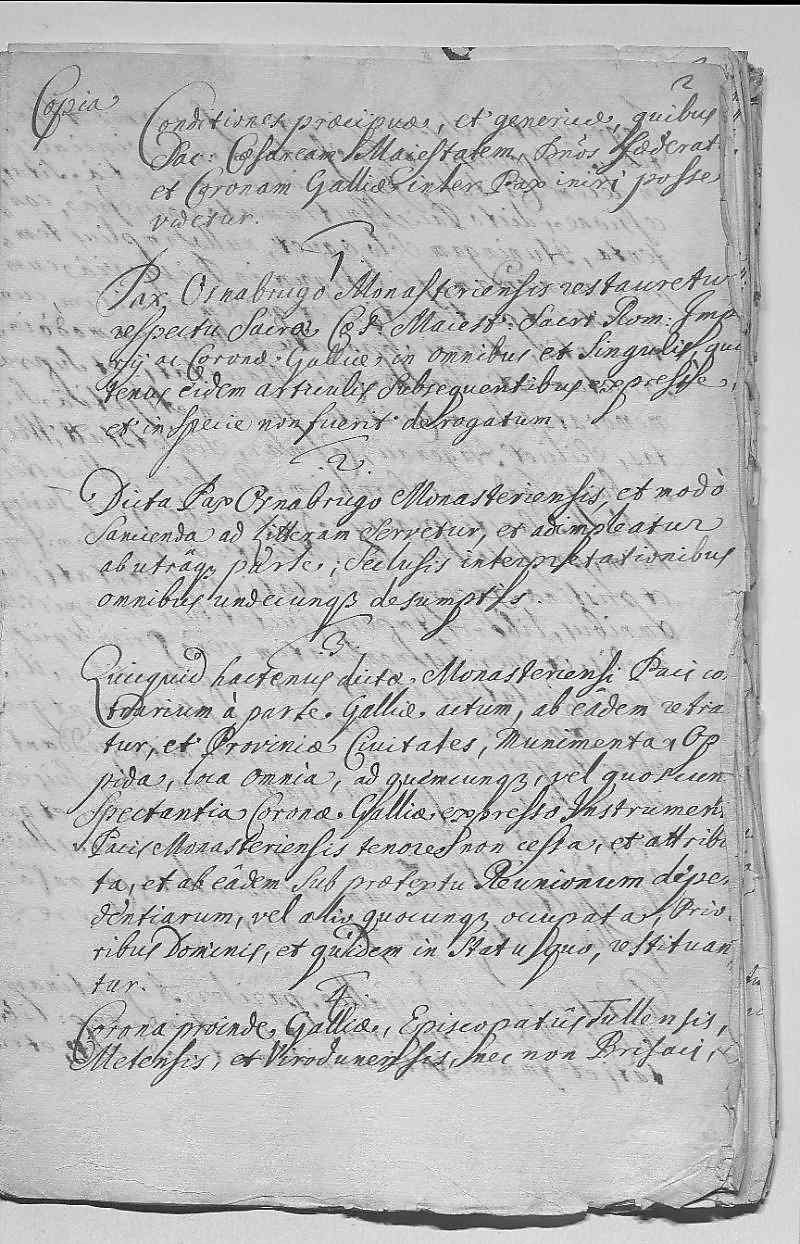 2
Copia
Conditiones præcipuæ, et genericæ, quibus
Sac: Cæsaream Maiestatem, Fœderat
et Coronam Galliæ inter Pax iniri posse
videtur.
1
Pax Osnabrugo Monasteriensis restauretur
respectu Sacræ Cæs: Maiest: Sacri Rom: Imp
rij ac Coronæ Galliæ in omnibus et singulis, qua
tenus eidem articulis subsequentibus expresse,
et in specie non fuerit derogatum.
.2.
Dicta Pax Osnabrugo Monasteriensis, et modò
sancienda ad litteram servetur, et adimpleatur
ab utrâq3 parte, seclusis interpretationibus
omnibus undecunq3 desumptis.
.3.
Quicquid hactenus dictæ Monasteriensi Paci co
trarium à parte Galliæ actum, ab eâdem retra
tur, et Provinciæ Civitates, Munimenta, Op
pida, loca omnia, ad quemcunq3, vel quoscun
spectantia Coronæ Galliæ expresso Instrumen
Pacis Monasteriensis tenore non cessa, et attribu
ta, et ab eâdem sub prætextu Reunionum depen
dentiarum, vel alio quocunq3 occupata, Prio
ribus Dominis, et quidem in statu quo, restituan
tur.
4
Corona proinde Galliæ, Episcopatûs Tullensis,
Metensis, et Virodunensis, nec non Brisaci,